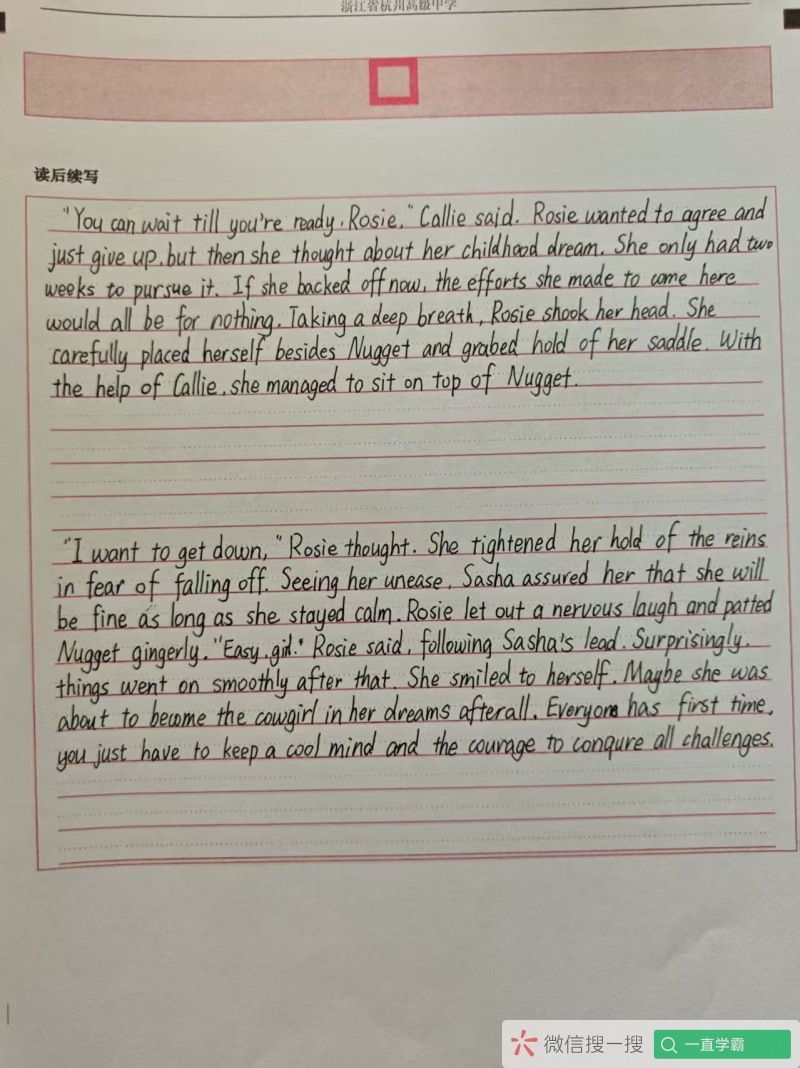 浙江省杭州高级中学
读后续写
"You can wait till you're ready, Rosie," Callie said. Rosie wanted to agree and
just give up, but then she thought about her childhood dream. She only had two
weeks to pursue it. If she backed off now, the efforts she made to come here
would all be for nothing. Taking a deep breath, Rosie shook her head. She
carefully placed herself besides Nugget and grabed hold of her saddle. With
the help of Callie, she managed to sit on top of Nugget.
"I want to get down," Rosie thought. She tightened her hold of the reins
in fear of falling off. Seeing her unease, Sasha assured her that she will
be fine as long as she stayed calm. Rosie let out a nervous laugh and patted
Nugget gingerly. "Easy, girl." Rosie said, following Sasha's lead. Surprisingly,
things went on smoothly after that. She smiled to herself. Maybe she was
about to become the cowgirl in her dreams afterall. Everyone has first time,
you just have to keep a cool mind and the courage to conqure all challenges.
微信搜一搜
一直学霸